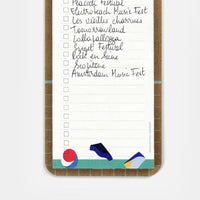 Peacock Festival
Electrobeach Music Fest
Les vieilles charrues
Tomorrowland
Lollapalooza
Sziget Festival
Rock en Seine
Amsterdam Music Fest